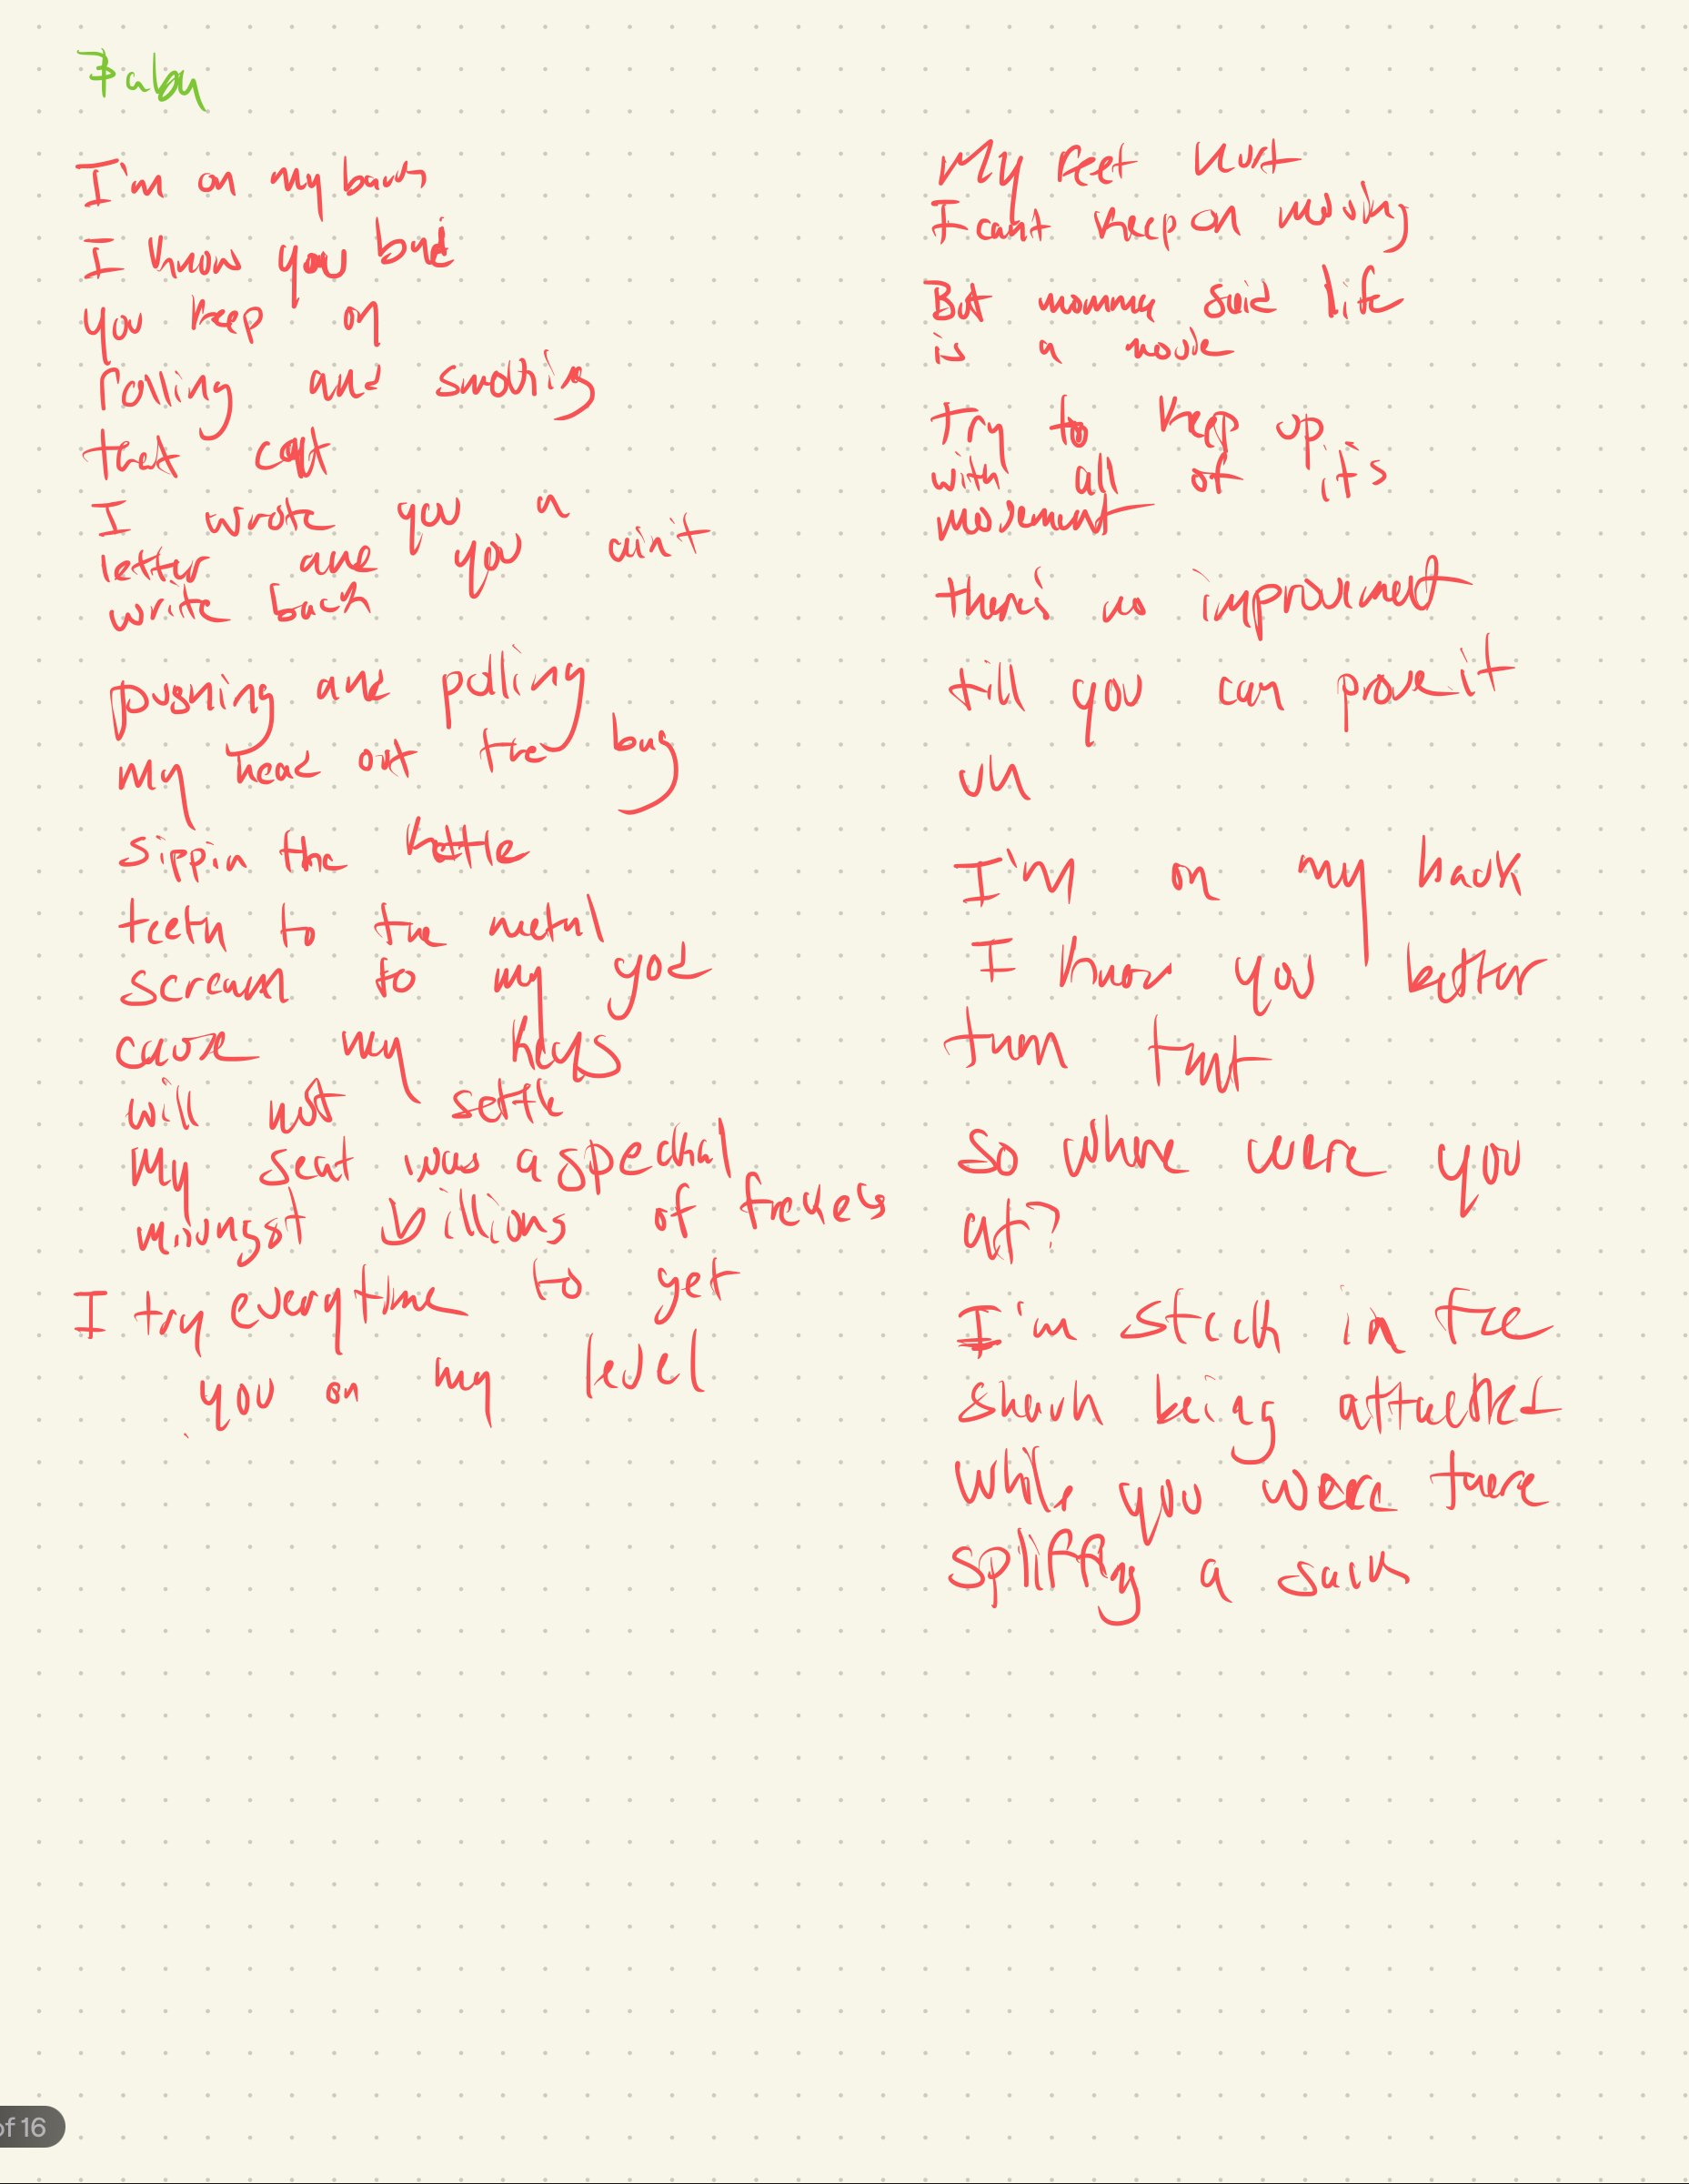 I'm on my back
I know you bad
you keep on
rolling and smoking
that
I wrote you a
letter and you ain't
write back
pushing and pulling
my head out the bag
sippin the kettle
teeth to the metal
scream to my god
cause my keys
will not settle
My seat was a
mongst billions of
I try everytime to get
you on my level
My feet hurt
I can't keep on moving
But momma said life
is a movie
try to keep up
with all of it's
movement
there's no improvement
till you can prove it
uh
I'm on my back
I know you better
than that
So where were you
at?
I'm stuck in the
shark being attacked
while you were there
spliffing a sack
of 16